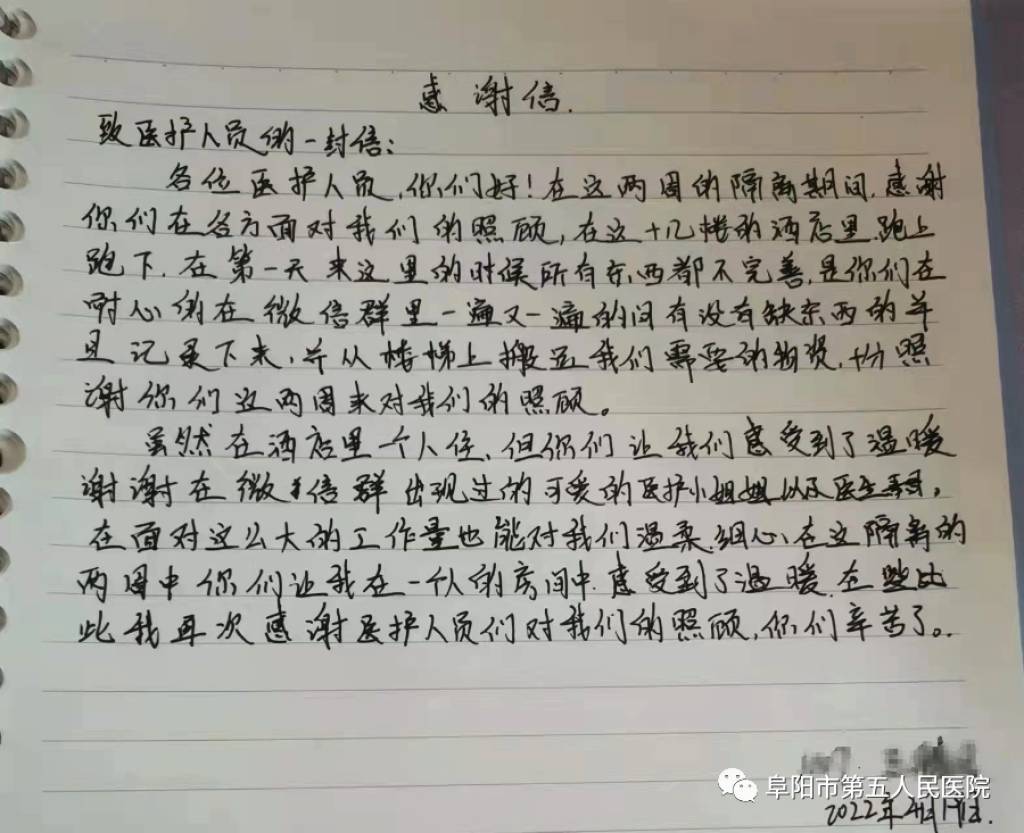 感谢信.
致医护人员的一封信:
各位医护人员,你们好!在这两周的隔离期间.感谢
你们在各方面对我们的照顾,在这十几楼的酒店里.跑上
跑下.在第一天来这里的时候所有东西都不完善,是你们在
耐心的在微信群里一遍又一遍的问有没有缺东西的并
且记录下来,并从楼梯上搬运我们需要的物资,十分照
谢你们这两周来对我们的照顾。
虽然在酒店里个人住、但你们让我们感受到了温暖
谢谢在微信群出现过的可爱的医护小姐姐以及医生
在面对这么大的工作量也能对我们温柔.细心、在这隔离的
两周中你们让我在一个人的房间中.感受到了温暖.在
此我再次感谢医护人员们对我们的照顾,你们辛苦了。.
阜阳市第五人民医院
2022年4月